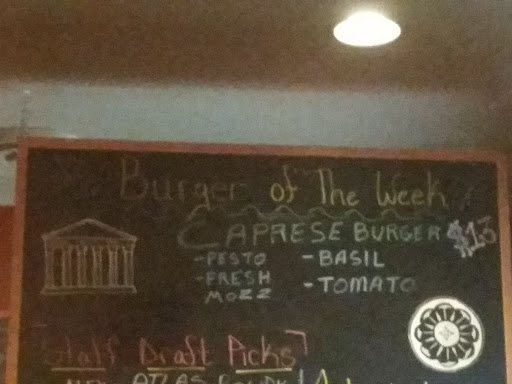 Burger of The Week
CAPRESE BURGER $13
-PESTO -BASIL
-FRESH MOZZ -TOMATO
Staff Draft Picks
ATLAS